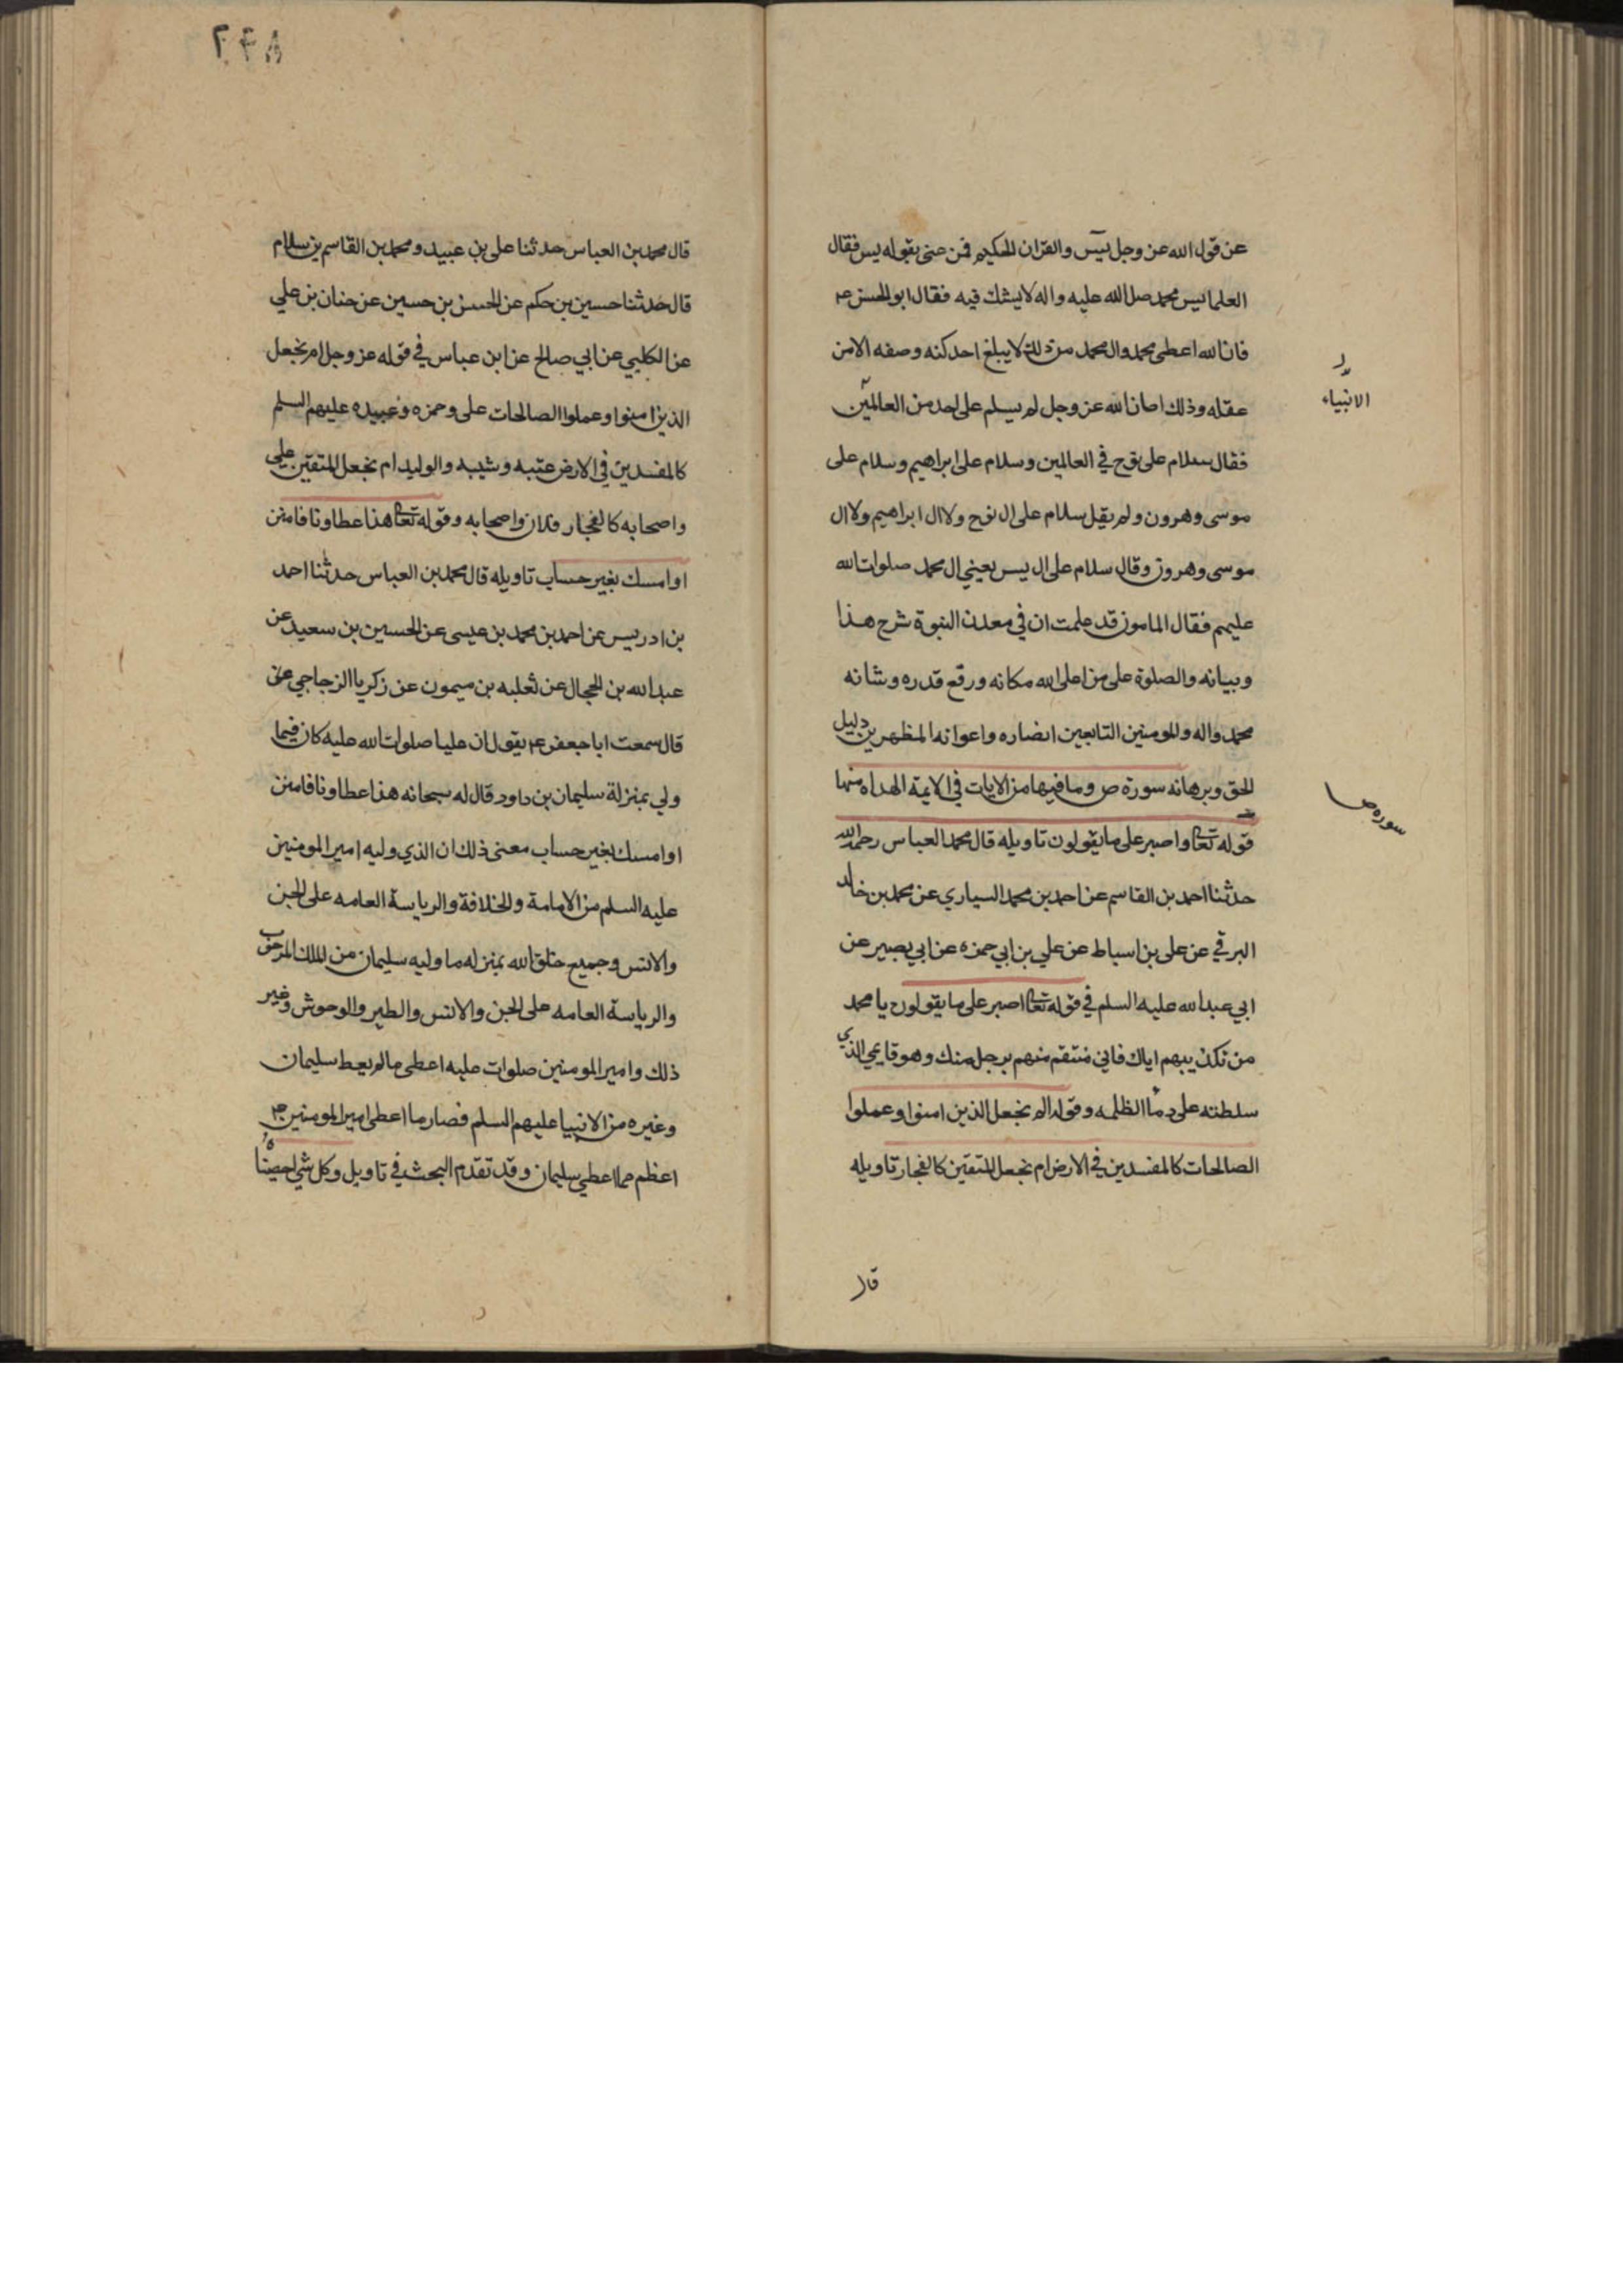 عن قول الله عز وجل يس والقران الحكيم فمن عنى بقوله يس فقال
العلما يس محمد صلى الله عليه واله لا يشك فيه فقال ابو الحسن ع
فان الله اعطى محمد وال محمد من ذلك لا يبلغ احد كنه وصفه الا من
عقله وذلك ان الله عز وجل لم يسلم على احد من العالمين
الانبياء
فقال سلام على نوح في العالمين وسلام على ابراهيم وسلام على
موسى وهرون ولم يقل سلام على ال نوح ولا ال ابراهيم ولا ال
موسى وهرون وقال سلام على ال يس يعني ال محمد صلوات الله
عليهم فقال المامون قد علمت ان في معدن النبوة شرح هذا
وبيانه والصلوة على من اعلى الله مكانه ورفع قدره وشانه
محمد واله والمومنين التابعين انصاره واعوانه المظهرين دليل
الحق وبرهانه سورة ص وما فيها من الايات في الايمة الهداه منها
سوره ص
قوله تعا واصبر على ما يقولون تاويله قال محمد العباس رحمه الله
حدثنا احمد بن القاسم عن احمد بن محمد السياري عن محمد بن خالد
البرقي عن على بن اسباط عن علي بن ابي حمزه عن ابي بصير عن
ابي عبد الله عليه السلم في قوله تعا اصبر على ما يقولون يا محمد
من تكذيبهم اياك فاني منتقم منهم برجل منك وهو قايمي الذي
سلطته على دما الظلمه وقوله ام نجعل الذين امنوا وعملوا
الصالحات كالمفسدين في الارض ام نجعل المتقين كالفجار تاويله
قال
٢٤٨
قال محمد بن العباس حدثنا على بن عبيد ومحمد بن القاسم بن سلام
قال حدثنا حسين بن حكم عن الحسن بن حسين عن حنان بن علي
عن الكلبي عن ابي صالح عن ابن عباس في قوله عز وجل ام نجعل
الذين امنوا وعملوا الصالحات على وحمزه وعبيده عليهم السلم
كالمفسدين في الارض عتبه وشيبه والوليد ام نجعل المتقين علي
واصحابه كالفجار فلان واصحابه وقوله تعا هذا عطاونا فامنن
او امسك بغير حساب تاويله قال محمد بن العباس حدثنا احمد
بن ادريس عن احمد بن محمد بن عيسى عن الحسين بن سعيد عن
عبد الله بن الحجال عن ثعلبه بن ميمون عن زكريا الزجاجي
قال سمعت ابا جعفر ع يقول ان عليا صلوات الله عليه كان فيما
ولي بمنزلة سليمان بن داود قال له سبحانه هذا عطاونا فامنن
او امسك بغير حساب معنى ذلك ان الذي وليه امير المومنين
عليه السلم من الامامة والخلافة والرياسة العامه على الجن
والانس وجميع خلق الله بمنزله ما وليه سليمان من الملك
والرياسة العامه على الجن والانس والطير والوحوش وغير
ذلك وامير المومنين صلوات عليه اعطى ما لم يعط سليمان
وغيره من الانبيا عليهم السلم فصار ما اعطى امير المومنين ع
اعظم مما اعطي سليمان وقد تقدم البحث في تاويل وكل شي احصيناه